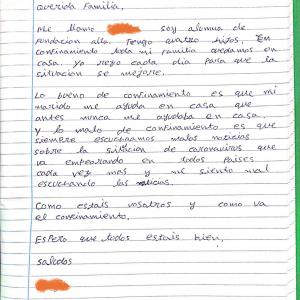 Querida Familia,
Me llamo soy alumna de
fundacion alla Tengo quatro hijos, En
confinamiento toda mi familia quedamos en
casa. yo rezo cada dia para que la
sitvacion se mejore.
Lo bueno de confinamiento es que mi
marido me ayuda en casa que
antes nunca me ayudaba en casa,
y lo malo de confinamiento es que
siempre escuchamos malos noticias
sobre la sitvcion de coronavirus que
va empeorando en todos paises
cada vez mas y me siento mal
escuchando las noticias.
Como estais vosotros y como va
el confinamiento,
Espero que todos estais bien,
saludos